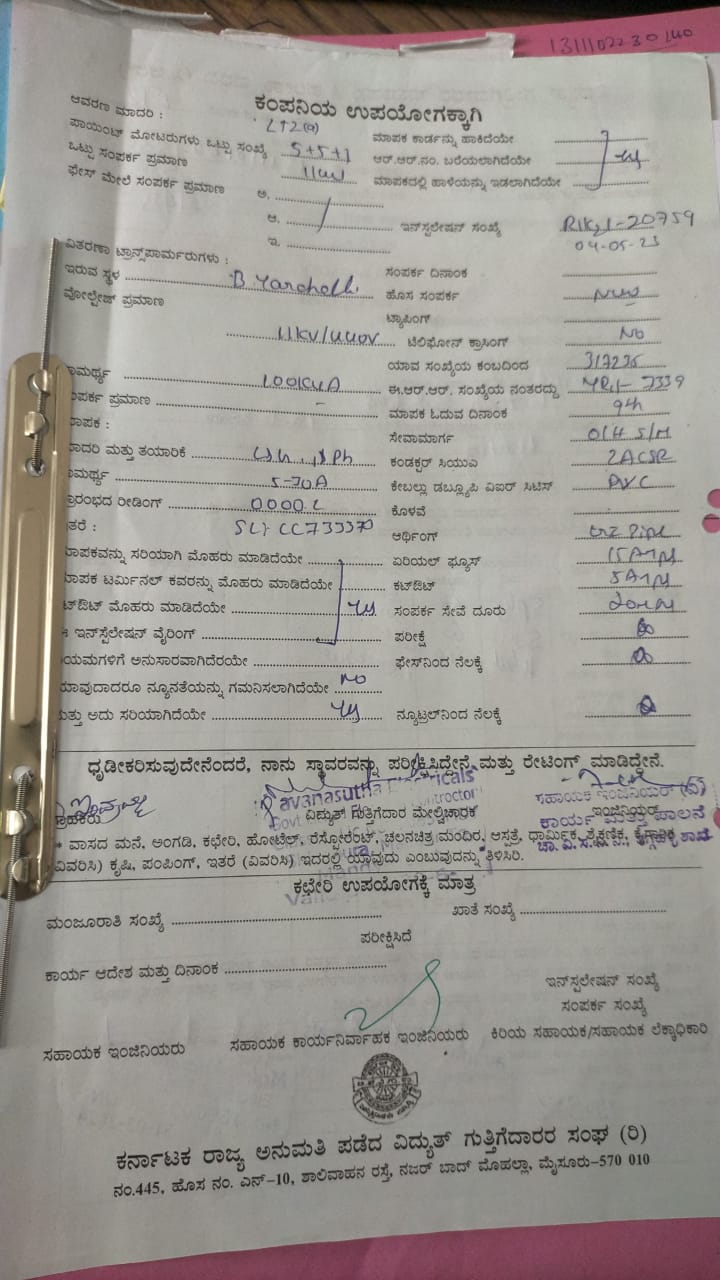 1311102230140
ಕಂಪನಿಯ ಉಪಯೋಗಕ್ಕಾಗಿ
ಆವರಣ ಮಾದರಿ : LT2(a)
ಪಾಯಿಂಟ್ ಮೋಟರುಗಳು ಒಟ್ಟು ಸಂಖ್ಯೆ 5+5+1 ಮಾಪಕ ಕಾರ್ಡನ್ನು ಹಾಕಿದೆಯೇ
ಒಟ್ಟು ಸಂಪರ್ಕ ಪ್ರಮಾಣ ಆರ್.ಆರ್.ನಂ. ಬರೆಯಲಾಗಿದೆಯೇ
ಫೇಸ್ ಮೇಲೆ ಸಂಪರ್ಕ ಪ್ರಮಾಣ ಅ. ಮಾಪಕದಲ್ಲಿ ಹಾಳೆಯನ್ನು ಇಡಲಾಗಿದೆಯೇ
ಆ. ಇನ್‌ಸ್ಪಲೇಷನ್ ಸಂಖ್ಯೆ 20759
ಇ. 04-05-23
ವಿತರಣಾ ಟ್ರಾನ್ಸ್‌ಫಾರ್ಮರುಗಳು : ಸಂಪರ್ಕ ದಿನಾಂಕ
ಇರುವ ಸ್ಥಳ ಹೊಸ ಸಂಪರ್ಕ New
ವೋಲ್ಟೇಜ್ ಪ್ರಮಾಣ ಟ್ಯಾಪಿಂಗ್
11KV/440V ಟೆಲಿಫೋನ್ ಕ್ರಾಸಿಂಗ್ No
ಾಮರ್ಥ್ಯ 100KVA ಯಾವ ಸಂಖ್ಯೆಯ ಕಂಬದಿಂದ
ಂಪರ್ಕ ಪ್ರಮಾಣ - ಈ.ಆರ್.ಆರ್. ಸಂಖ್ಯೆಯ ನಂತರದ್ದು
ಾಪಕ : ಮಾಪಕ ಓದುವ ದಿನಾಂಕ 9th
ಾದರಿ ಮತ್ತು ತಯಾರಿಕೆ ಸೇವಾಮಾರ್ಗ O/H S/M
ಾಮರ್ಥ್ಯ 5-30A ಕಂಡಕ್ಟರ್ ಸಿಯುವಿ 2ACSR
್ರಾರಂಭದ ರೀಡಿಂಗ್ ಕೇಬಲ್ಲು ಡಬ್ಲ್ಯೂಪಿ ವಿಐರ್ ಸಿಟಿಸ್ PVC
ತರೆ : ಕೊಳವೆ
ಾಪಕವನ್ನು ಸರಿಯಾಗಿ ಮೊಹರು ಮಾಡಿದೆಯೇ ಅರ್ಥಿಂಗ್
ಾಪಕ ಟರ್ಮಿನಲ್ ಕವರನ್ನು ಮೊಹರು ಮಾಡಿದೆಯೇ ಏರಿಯಲ್ ಫ್ಯೂಸ್ 15Amps
ಟ್‌ಔಟ್ ಮೊಹರು ಮಾಡಿದೆಯೇ ಕಟ್‌ಔಟ್ 5Amps
ಇನ್‌ಸ್ಪೆಲೇಷನ್ ವೈರಿಂಗ್ ಸಂಪರ್ಕ ಸೇವೆ ದೂರು
ಯಮಗಳಿಗೆ ಅನುಸಾರವಾಗಿದೆರಯೇ ಪರೀಕ್ಷೆ
ಯಾವುದಾದರೂ ನ್ಯೂನತೆಯನ್ನು ಗಮನಿಸಲಾಗಿದೆಯೇ No ಫೇಸ್‌ನಿಂದ ನೆಲಕ್ಕೆ
ುತ್ತು ಅದು ಸರಿಯಾಗಿದೆಯೇ ನ್ಯೂಟ್ರಲ್‌ನಿಂದ ನೆಲಕ್ಕೆ
ಧೃಡೀಕರಿಸುವುದೇನೆಂದರೆ, ನಾನು ಸ್ಥಾವರವನ್ನು ಪರೀಕ್ಷಿಸಿದ್ದೇನೆ ಮತ್ತು ರೇಟಿಂಗ್ ಮಾಡಿದ್ದೇನೆ.
ಗ್ರಾಹಕರು ವಿದ್ಯುತ್ ಗುತ್ತಿಗೆದಾರ ಮೇಲ್ವಿಚಾರಕ ಇಂಜಿನಿಯರ್
ಸಹಾಯಕ ಇಂಜಿನಿಯರ್ (ವಿ)
* ವಾಸದ ಮನೆ, ಅಂಗಡಿ, ಕಛೇರಿ, ಹೋಟೆಲ್, ರೆಸ್ಟೋರೆಂಟ್, ಚಲನಚಿತ್ರ ಮಂದಿರ, ಆಸ್ಪತ್ರೆ, ಧಾರ್ಮಿಕ, ಶೈಕ್ಷಣಿಕ, ಕೈಗಾರಿಕ
(ವಿವರಿಸಿ) ಕೃಷಿ, ಪಂಪಿಂಗ್, ಇತರೆ (ವಿವರಿಸಿ) ಇದರಲ್ಲಿ ಯಾವುದು ಎಂಬುವುದನ್ನು ತಿಳಿಸಿರಿ.
ಕಛೇರಿ ಉಪಯೋಗಕ್ಕೆ ಮಾತ್ರ
ಮಂಜೂರಾತಿ ಸಂಖ್ಯೆ ಖಾತೆ ಸಂಖ್ಯೆ
ಪರೀಕ್ಷಿಸಿದೆ
ಕಾರ್ಯ ಆದೇಶ ಮತ್ತು ದಿನಾಂಕ
ಇನ್‌ಸ್ಪಲೇಷನ್ ಸಂಖ್ಯೆ
ಸಂಪರ್ಕ ಸಂಖ್ಯೆ
ಸಹಾಯಕ ಇಂಜಿನಿಯರು ಸಹಾಯಕ ಕಾರ್ಯನಿರ್ವಾಹಕ ಇಂಜಿನಿಯರು ಕಿರಿಯ ಸಹಾಯಕ/ಸಹಾಯಕ ಲೆಕ್ಕಾಧಿಕಾರಿ
ಕರ್ನಾಟಕ ರಾಜ್ಯ ಅನುಮತಿ ಪಡೆದ ವಿದ್ಯುತ್ ಗುತ್ತಿಗೆದಾರರ ಸಂಘ (ರಿ)
ನಂ.445, ಹೊಸ ನಂ. ಎನ್-10, ಶಾಲಿವಾಹನ ರಸ್ತೆ, ನಜರ್ ಬಾದ್ ಮೊಹಲ್ಲಾ, ಮೈಸೂರು-570 010